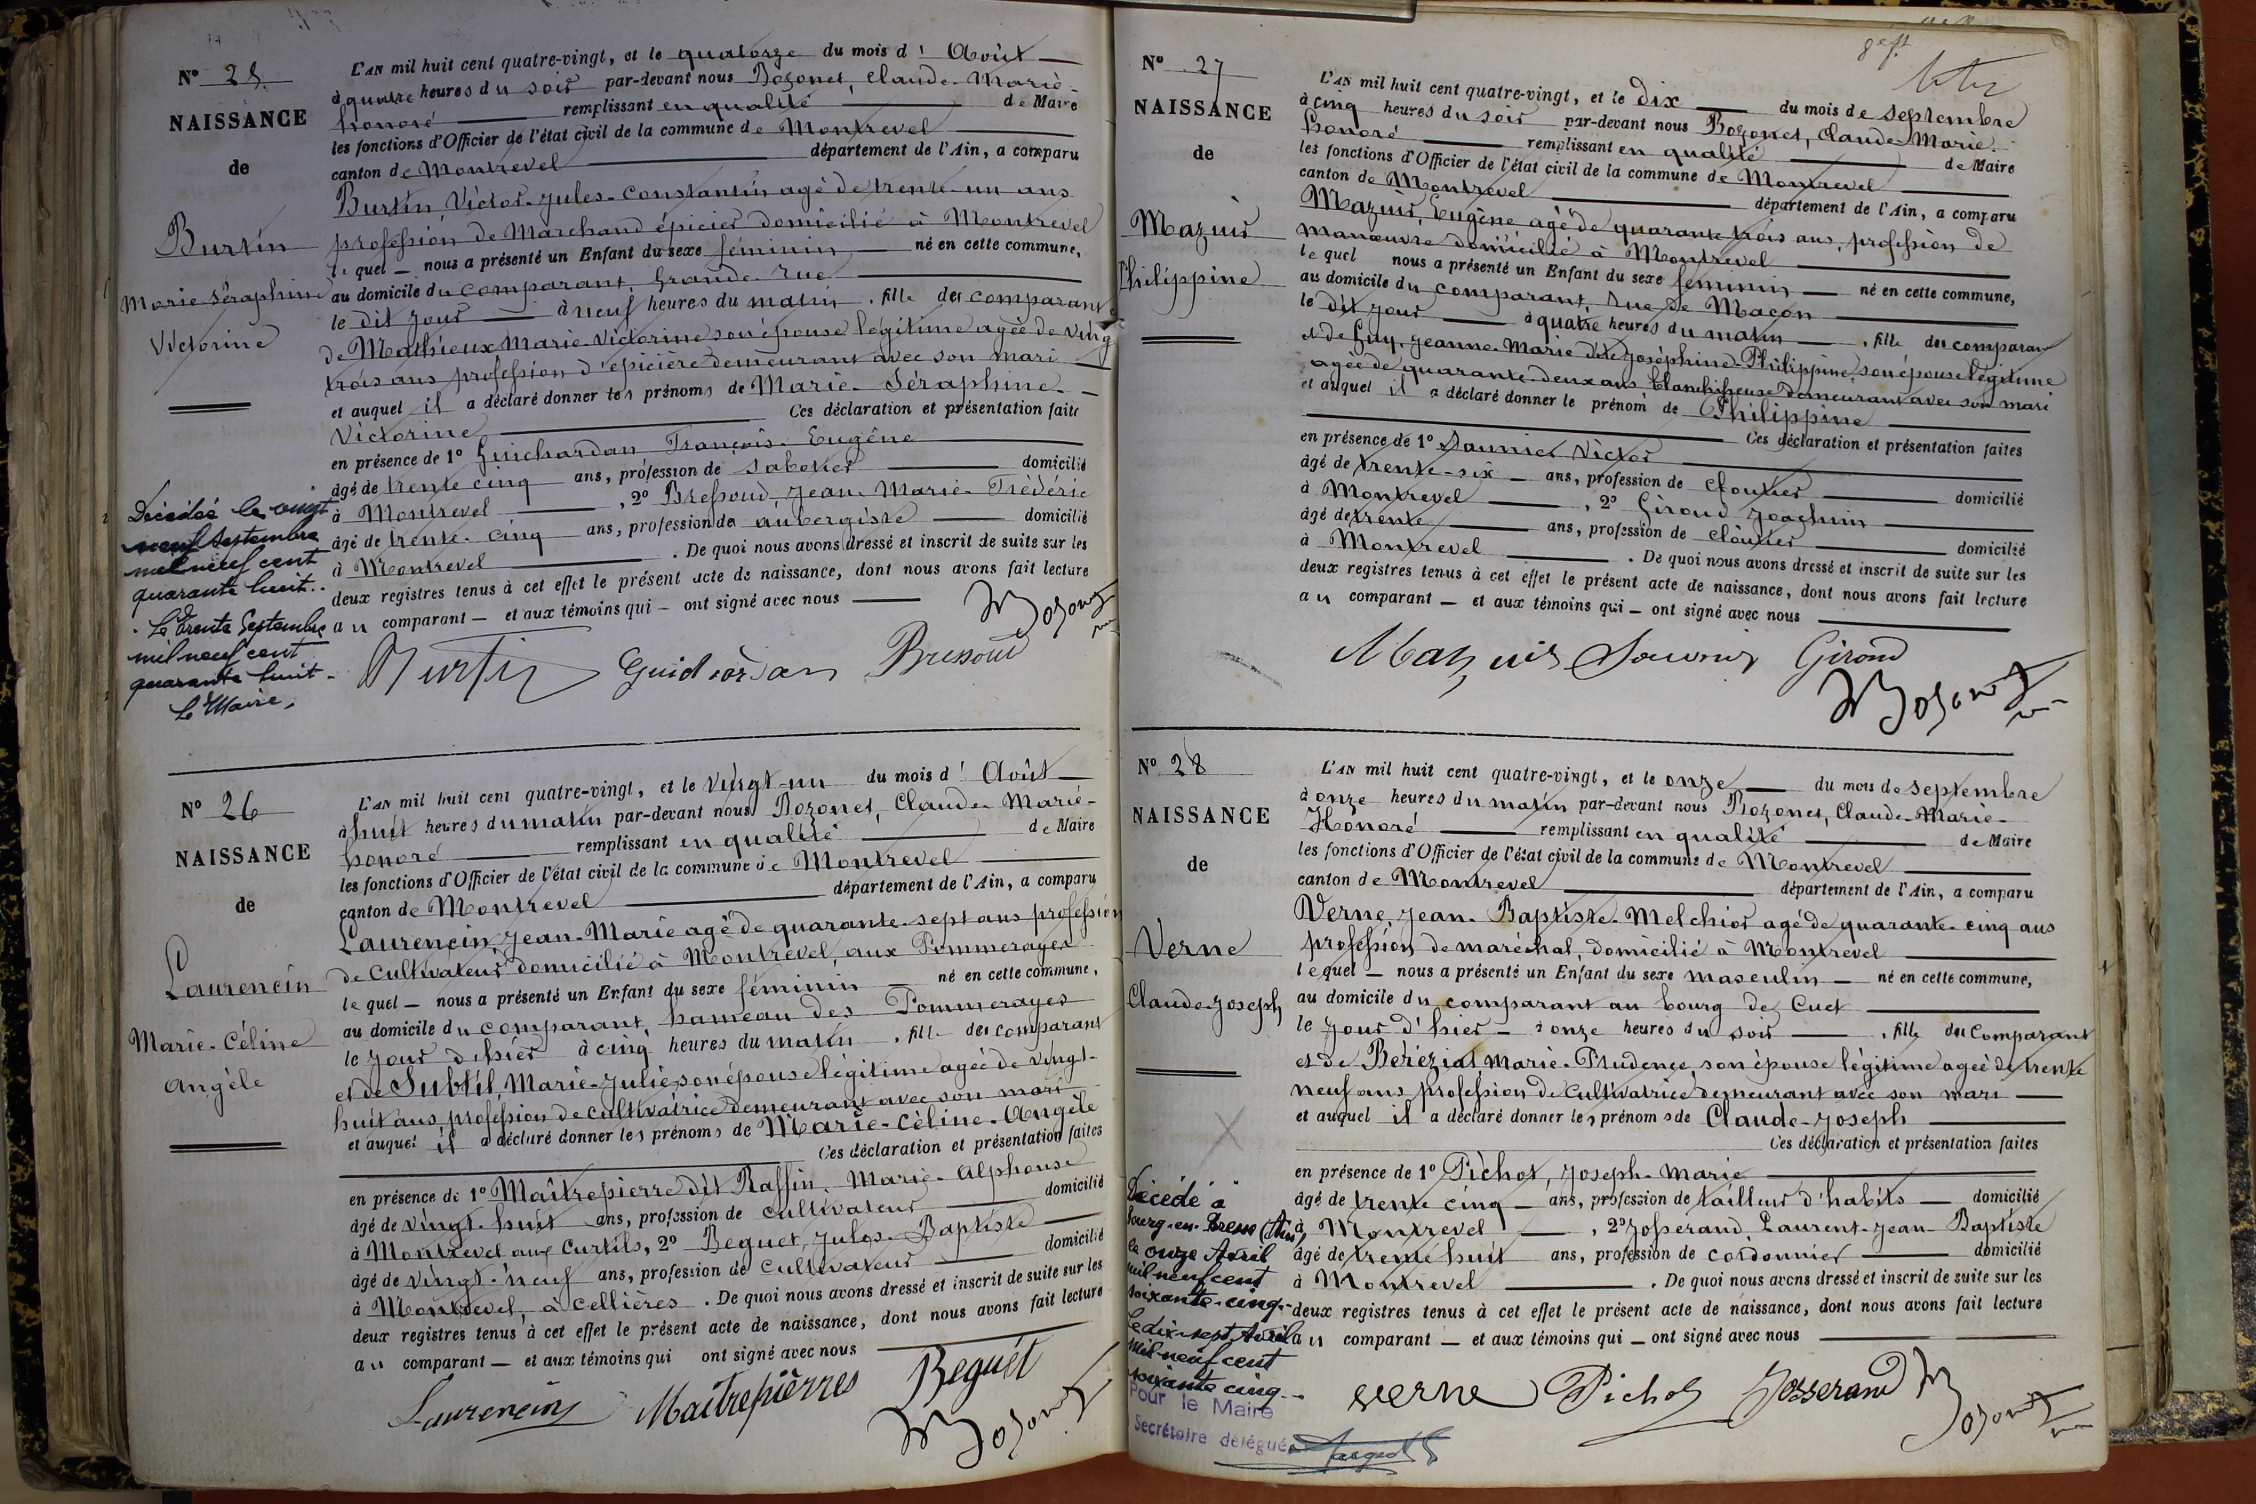 N° 25
NAISSANCE
de
Burtin
Marie Séraphine
Victorine
L'AN mil huit cent quatre-vingt, et le quatorze du mois d' Août
à quatre heures du soir par-devant nous Bozonet, Claude-Marie-
honoré remplissant en qualité de Maire
les fonctions d'Officier de l'état civil de la commune de Montrevel
canton de Montrevel département de l'Ain, a comparu
Burtin, Victor-Jules-Constantin agé de trente-un ans
profession de Marchand épicier domicilié à Montrevel
le quel nous a présenté un Enfant du sexe féminin né en cette commune,
au domicile du comparant, Grande rue
le dit jour à neuf heures du matin, fille des comparant
de Mathieux Marie-Victorine son épouse légitime agée de ving
trois ans profession d'épicière demeurant avec son mari
et auquel il a déclaré donner les prénoms de Marie-Séraphine-
Victorine Ces déclaration et présentation faite
en présence de 1° Guichardan, François-Eugène
âgé de trente cinq ans, profession de sabotier domicilié
à Montrevel, 2° Bressoud, Jean-Marie-Frédéric
âgé de trente-cinq ans, profession de aubergiste domicilié
à Montrevel. De quoi nous avons dressé et inscrit de suite sur les
deux registres tenus à cet effet le présent acte de naissance, dont nous avons fait lecture
au comparant et aux témoins qui ont signé avec nous
Burtin Guichardan Bressoud Bozonet
Décédée le vingt
neuf Septembre
mil neuf cent
quarante huit.
Le trente Septembre
mil neuf cent
quarante huit
Le Maire,
N° 26
NAISSANCE
de
Laurencin
Marie-Céline
Angèle
L'AN mil huit cent quatre-vingt, et le vingt-un du mois d' Août
à huit heures du matin par-devant nous Bozonet, Claude-Marie-
honoré remplissant en qualité de Maire
les fonctions d'Officier de l'état civil de la commune de Montrevel
canton de Montrevel département de l'Ain, a comparu
Laurencin, Jean-Marie agé de quarante-sept ans profession
de cultivateur domicilié à Montrevel, aux Pommerayes
le quel nous a présenté un Enfant du sexe féminin né en cette commune,
au domicile du comparant, hameau des Pommerayes
le jour d'hier à cinq heures du matin, fille des comparant
et de Subtil, Marie-Julie, son épouse légitime agée de vingt-
huit ans, profession de cultivatrice demeurant avec son mari
et auquel il a déclaré donner les prénoms de Marie-Céline-Angèle
Ces déclaration et présentation faites
en présence de 1° Maîtrepierre dit Raffin, Marie-Alphonse
âgé de vingt-huit ans, profession de cultivateur domicilié
à Montrevel aux Curtils, 2° Beguet, Jules-Baptiste
âgé de vingt-neuf ans, profession de cultivateur domicilié
à Montrevel, à Cellières. De quoi nous avons dressé et inscrit de suite sur les
deux registres tenus à cet effet le présent acte de naissance, dont nous avons fait lecture
au comparant et aux témoins qui ont signé avec nous
Laurencin Maitrepierres Beguet
Bozonet
N° 27
NAISSANCE
de
Mazuir
Philippine
L'AN mil huit cent quatre-vingt, et le dix du mois de septembre
à cinq heures du soir par-devant nous Bozonet, Claude-Marie-
honoré remplissant en qualité de Maire
les fonctions d'Officier de l'état civil de la commune de Montrevel
canton de Montrevel département de l'Ain, a comparu
Mazuir, Eugène agé de quarante trois ans, profession de
manœuvre domicilié à Montrevel
le quel nous a présenté un Enfant du sexe féminin né en cette commune,
au domicile du comparant, rue de Macon
le dit jour à quatre heures du matin, fille des comparan
et de Guy, Jeanne-Marie dite Joséphine-Philippine, son épouse légitime
agée de quarante-deux ans blanchisseuse demeurant avec son mari
et auquel il a déclaré donner le prénom de Philippine
Ces déclaration et présentation faites
en présence de 1° Saunier Victor
âgé de trente-six ans, profession de cloutier domicilié
à Montrevel, 2° Giroud Joachim
âgé de trente ans, profession de cloutier domicilié
à Montrevel. De quoi nous avons dressé et inscrit de suite sur les
deux registres tenus à cet effet le présent acte de naissance, dont nous avons fait lecture
au comparant et aux témoins qui ont signé avec nous
Mazuir Giroud
Bozonet
N° 28
NAISSANCE
de
Verne
Claude-Joseph
L'AN mil huit cent quatre-vingt, et le onze du mois de septembre
à onze heures du matin par-devant nous Bozonet, Claude-Marie-
Honoré remplissant en qualité de Maire
les fonctions d'Officier de l'état civil de la commune de Montrevel
canton de Montrevel département de l'Ain, a comparu
Verne, Jean-Baptiste-Melchior agé de quarante-cinq ans
profession de maréchal, domicilié à Montrevel
lequel nous a présenté un Enfant du sexe masculin né en cette commune,
au domicile du comparant au bourg de Cuet
le jour d'hier à onze heures du soir, fille du Comparant
et de Béréziat Marie-Prudence, son épouse légitime agée de trente
neuf ans, profession de cultivatrice demeurant avec son mari
et auquel il a déclaré donner les prénoms de Claude-Joseph
Ces déclaration et présentation faites
en présence de 1° Pichot, Joseph-Marie
âgé de trente cinq ans, profession de tailleur d'habits domicilié
à Montrevel, 2° Josserand, Laurent-Jean-Baptiste
âgé de trente huit ans, profession de cordonnier domicilié
à Montrevel. De quoi nous avons dressé et inscrit de suite sur les
deux registres tenus à cet effet le présent acte de naissance, dont nous avons fait lecture
au comparant et aux témoins qui ont signé avec nous
verne Pichot Josserand Bozonet
Décédé à
Bourg-en-Bresse (Ain)
le onze Avril
mil neuf cent
soixante-cinq.
Le dix-sept Avril
mil-neuf cent
soixante cinq
Pour le Maire
Secrétaire délégué